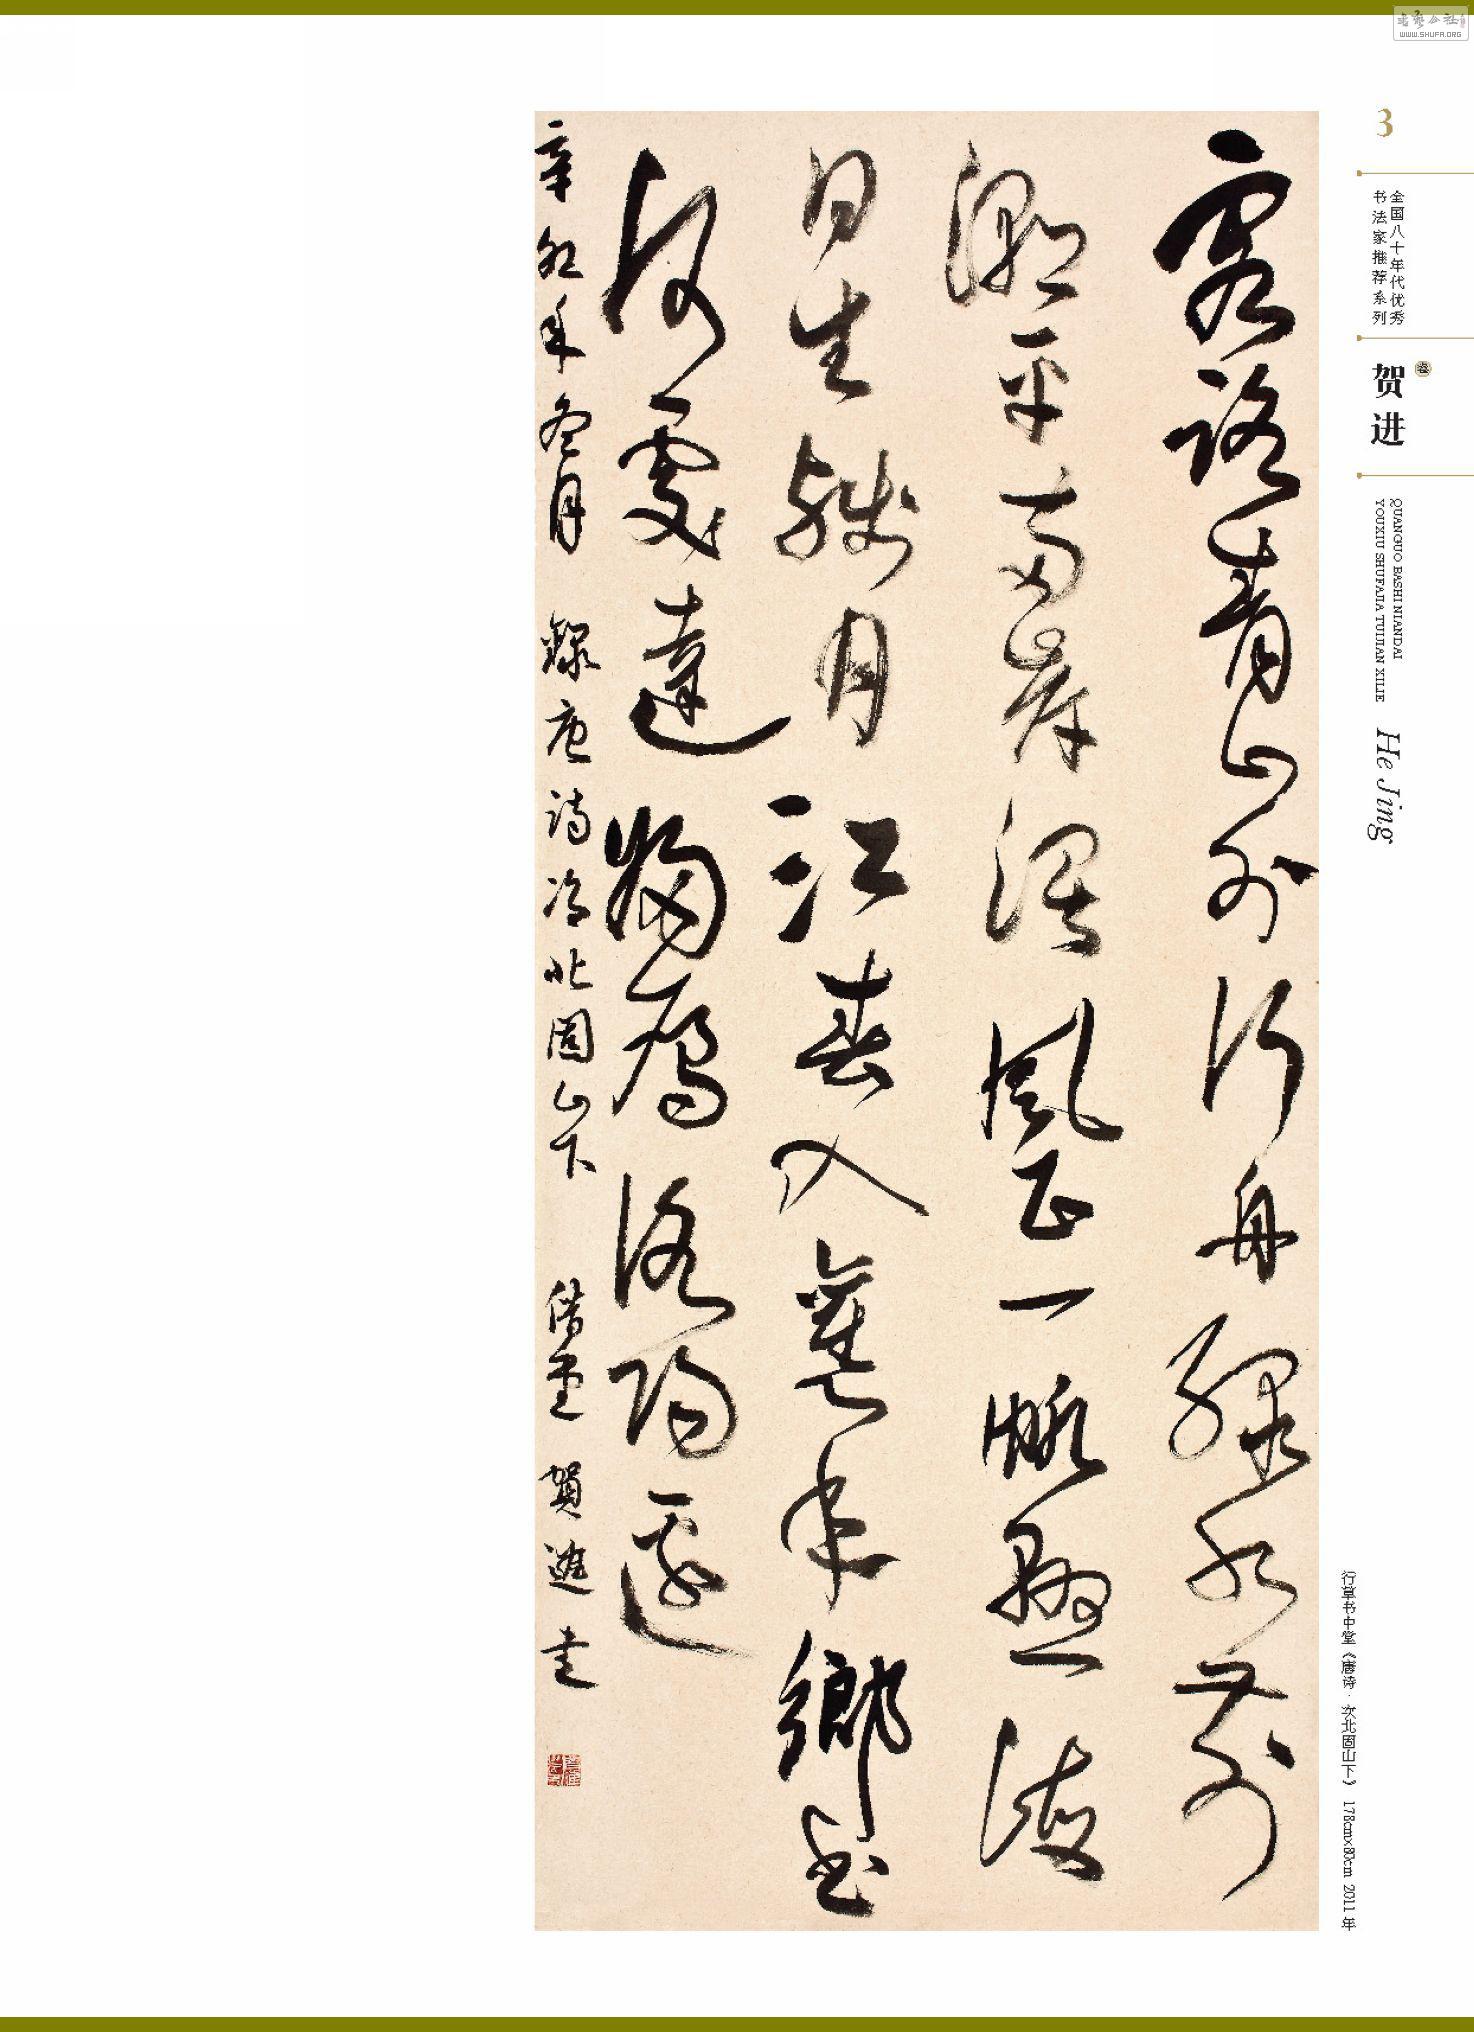 書藝公社
WWW.SHUFA.ORG
3
全国八十年代优秀
书法家推荐系列
贺进
卷
QUANGUO BASHI NIANDAI
YOUXIU SHUFAJIA TUIJIAN XILIE
He Jing
客路青山外行舟綠水前
潮平兩岸濶風正一帆懸海
日生殘月江春入舊年鄉書
何處達歸雁洛陽邊
辛卯年冬月 錄唐詩次北固山下 借堂 賀進書
行草书中堂《唐诗·次北固山下》 178cm×80cm 2011年